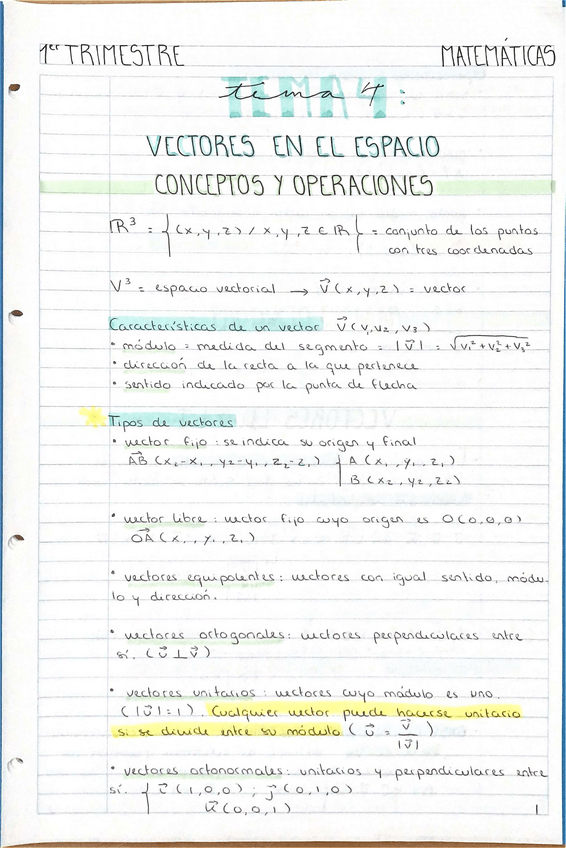 1er TRIMESTRE MATEMÁTICAS
TEMA 4:
tema 4
VECTORES EN EL ESPACIO
CONCEPTOS Y OPERACIONES
ℝ³ = {(x,y,z) / x,y,z ∈ ℝ} = conjunto de los puntos
con tres coordenadas
V³ = espacio vectorial → V⃗(x,y,z) = vector
Características de un vector V⃗(v₁,v₂,v₃)
• módulo = medida del segmento = |V⃗| = √(v₁²+v₂²+v₃²)
• dirección de la recta a la que pertenece
• sentido indicado por la punta de flecha
Tipos de vectores
• vector fijo: se indica su origen y final
AB⃗ (x₂-x₁, y₂-y₁, z₂-z₁) { A (x₁, y₁, z₁)
B (x₂, y₂, z₂)
• vector libre: vector fijo cuyo origen es O(0,0,0)
OA⃗ (x₁, y₁, z₁)
• vectores equipolentes: vectores con igual sentido, módu-
lo y dirección.
• vectores ortogonales: vectores perpendiculares entre
sí. (u⃗ ⊥ v⃗)
• vectores unitarios: vectores cuyo módulo es uno.
(|u⃗|=1). Cualquier vector puede hacerse unitario
si se divide entre su módulo (u⃗ = v⃗/|v⃗|)
• vectores ortonormales: unitarios y perpendiculares entre
sí. { i⃗ (1,0,0) ; j⃗ (0,1,0)
k⃗ (0,0,1)
1